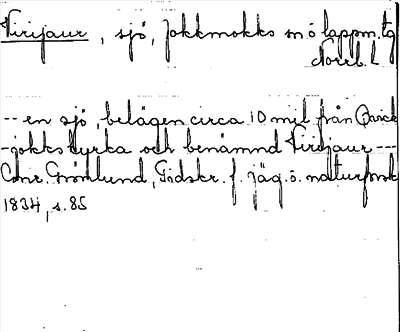 Virijaur, sjö, Jokkmokks sn o lappm. tg
Norrb. L
-- en sjö, belägen circa 10 mil från Qvick
-jokks kyrka och benämnd Virijaur ---
Conr. Grönlund, Tidskr. f. jäg. o. naturforsk
1834, s. 85